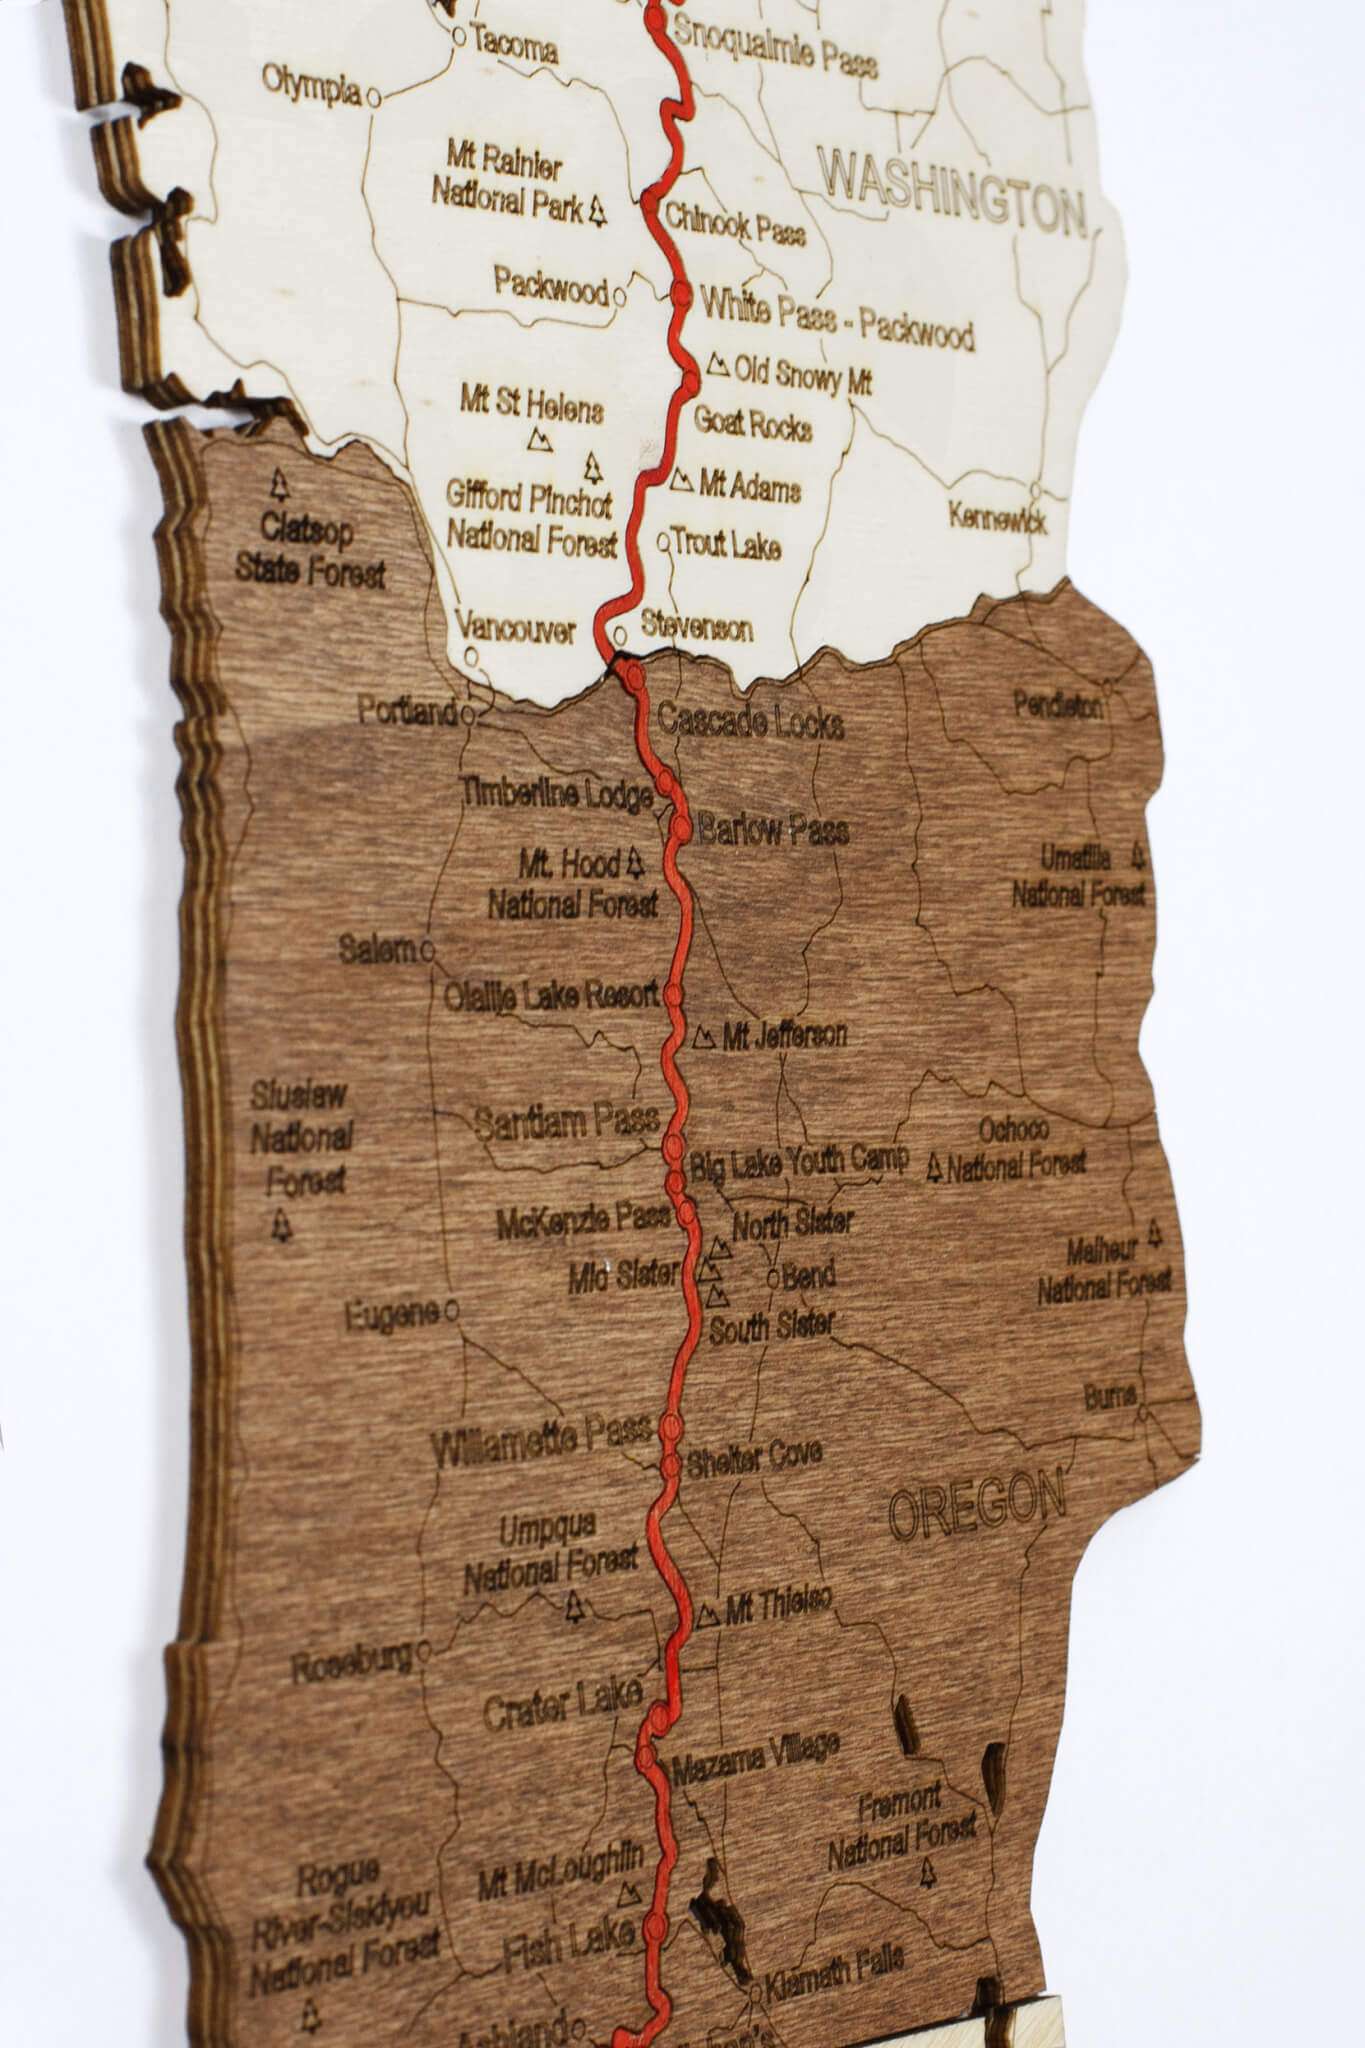 Tacoma
Snoqualmie Pass
Olympia
WASHINGTON
Mt Rainier
National Park
Chinook Pass
Packwood
White Pass - Packwood
Old Snowy Mt
Mt St Helens
Goat Rocks
Gifford Pinchot
National Forest
Mt Adams
Kennewick
Clatsop
State Forest
Trout Lake
Vancouver
Stevenson
Portland
Cascade Locks
Pendleton
Timberline Lodge
Barlow Pass
Mt. Hood
National Forest
Umatilla
National Forest
Salem
Olallie Lake Resort
Mt Jefferson
Siuslaw
National
Forest
Santiam Pass
Big Lake Youth Camp
Ochoco
National Forest
McKenzie Pass
North Sister
Mid Sister
Bend
Malheur
National Forest
Eugene
South Sister
Burns
Willamette Pass
Shelter Cove
OREGON
Umpqua
National Forest
Mt Thielso
Roseburg
Crater Lake
Mazama Village
Fremont
National Forest
Mt McLoughlin
Rogue
River-Siskiyou
National Forest
Fish Lake
Klamath Falls
Ashland